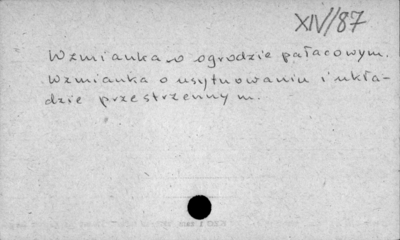 XIV/87
Wzmianka o ogrodzie pałacowym.
Wzmianka o usytuowaniu i ukła-
dzie przestrzennym.